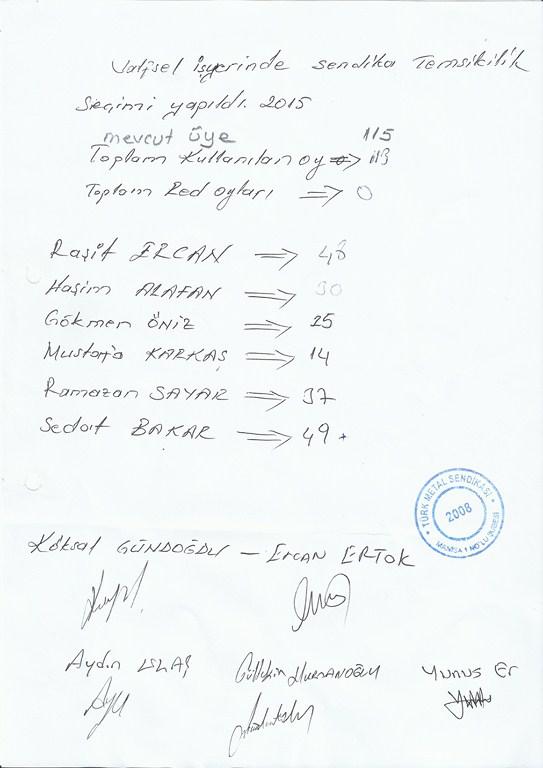 Valfsel işyerinde sendika Temsilcilik
Seçimi yapıldı. 2015
mevcut üye 115
Toplam Kullanılan oy => 113
Toplam Red oyları => 0
Raşit ERCAN => 48
Haşim ALAFAN => 30
Gökmen ÖNİZ => 25
Mustafa KARKAŞ => 14
Ramazan SAYAR => 37
Sedat BAKAR => 49
TÜRK METAL SENDİKASI
2008
MANİSA 1 NO'LU ŞUBESİ
Köksal GÜNDOĞDU — Ercan ERTOK
Aydın Gültekin Yunus Er